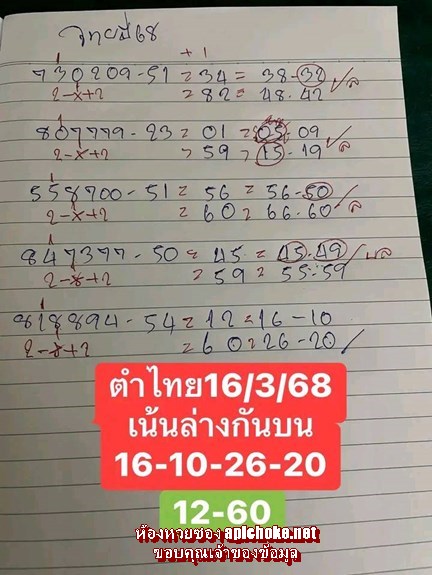 + 1
730209-51 = 34 = 38-32
2-x+2 = 82 = 48-42
807779-23 = 01 = 05-09
2-x+2 > 59 > 15-19
558700-51 = 56 = 56-50
2-x+2 = 60 = 66-60
847377-50 = 45 = 45-49
2-x+2 > 59 = 55-59
818894-54 = 12 = 16-10
2-x+2 = 60 = 26-20
ตำไทย16/3/68
เน้นล่างกันบน
16-10-26-20
12-60
ห้องหวยซอง apichoke.net
ขอบคุณเจ้าของข้อมูล